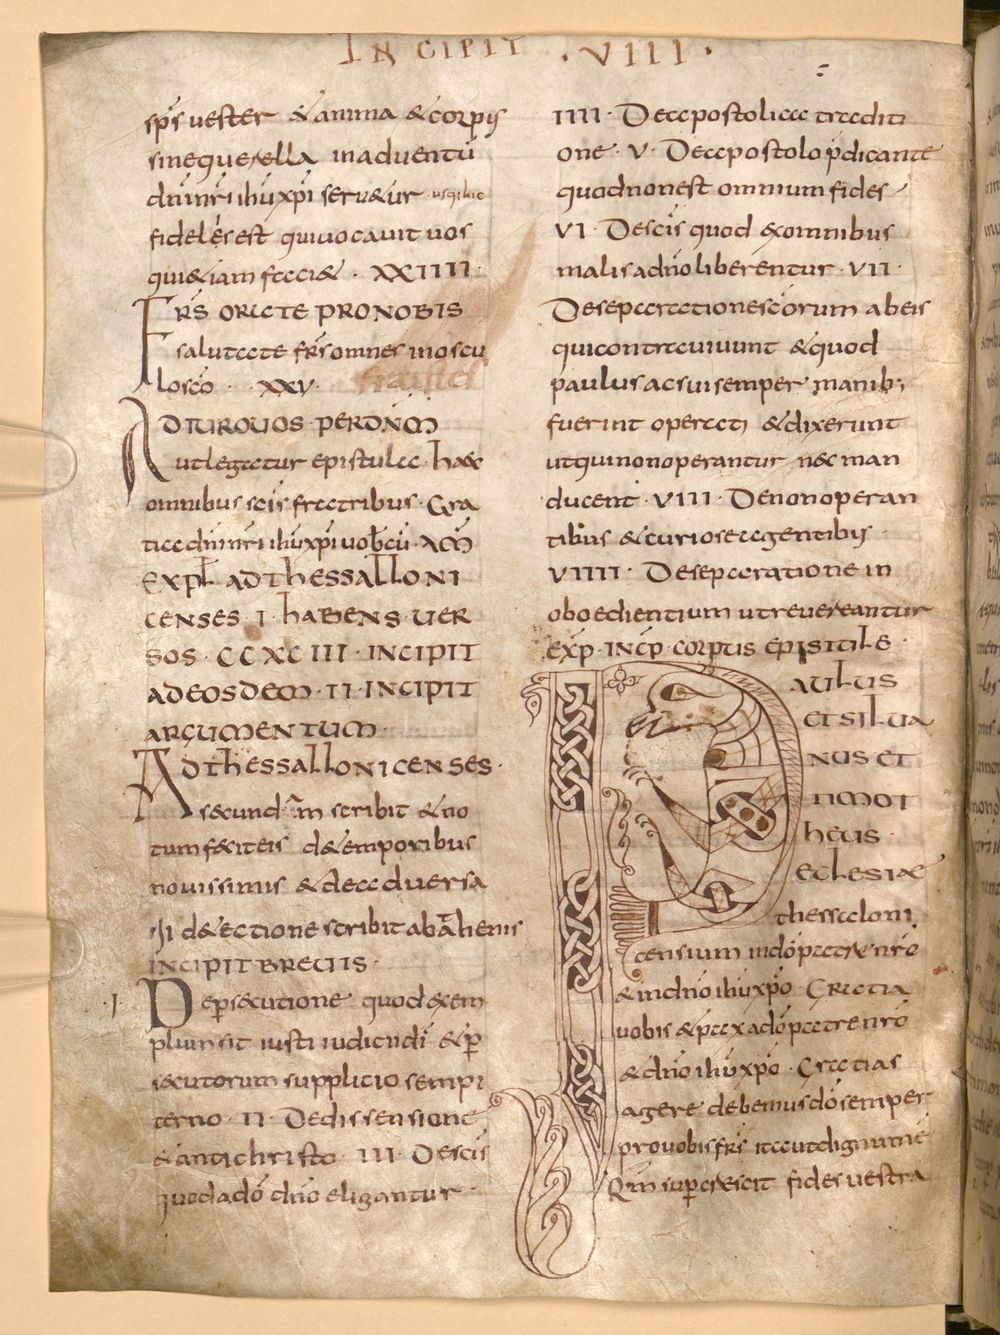 INCIPIT · VIII ·
sp̄s vester & anima & corp;
sine querella in adventū
dn̄i nr̄i ihū xp̄i serv&ur · usq; hic
fideles est qui vocavit vos
qui &iam faci& · XXIIII ·
FRS̄ ORATE PRO NOBIS
salutate fr̄s omnes in oscu
lo sc̄o · XXV ·
ADIURO VOS PER DN̄M
ut legatur epistula haec
omnibus sc̄is fratribus · Gra
tia dn̄i nr̄i ihū xp̄i vobcū · AM̄
EXPL AD THESSALLONI
CENSES · I · HABENS · VER
SOS · CCXCIII · INCIPIT
AD EOSDEM · II · INCIPIT
ARGUMENTUM ·
AD THESSALLONICENSES ·
secundam scribit & no
tum facit eis de temporibus
novissimis & de adversa
rii deiectione scribit ab athenis
INCIPIT BREVIS ·
· I · De persecutione quod exem
plum sit iusti iudicii di & per
secutorum supplicio sempi
terno · II · De dissensione
& antichristo · III · De scis
quod a dō dn̄o eligantur
IIII · De apostolica traditi
one · V · De apostolo p̄dicante
quod non est omnium fides
VI · De scis quod ex omnibus
malis a dn̄o liberentur · VII ·
De separationes eorum ab eis
qui contra vivunt & quod
paulus ac sui semper manib;
fuerint operati & dixerunt
ut qui non operantur nec man
ducent · VIII · De non operan
tibus & curiose agentib;
VIIII · De separatione in
oboedientium ut revereantur
EXP · INCP · CORPUS EPISTLE ·
PAULUS
ET SILUA
NUS ET
TIMOT
HEUS ·
ECLESIAE
thessaloni
censium in dō patre nr̄o
& in dn̄o ihū xp̄o · Gratia
vobis & pax a dō patre nr̄o
& dn̄o ihū xp̄o · Gratias
agere debemus dō semper
pro vobis fr̄s ita ut dignum ē
Qm̄ supercrescit fides vestra